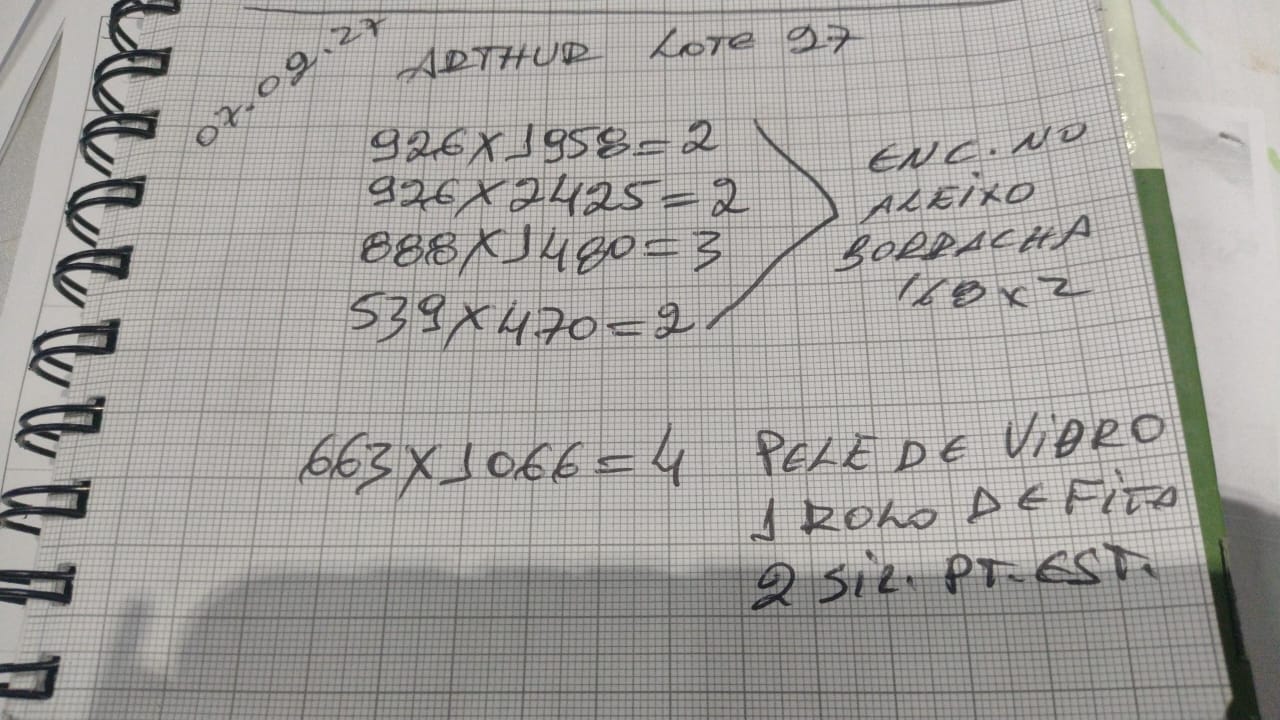 ARTHUR LOTE 97
926X1958=2
926X2425=2
888X1480=3
539X470=2
ENC. NO
ALEIXO
BORRACHA
168x2
663X1066=4 PELE DE VIDRO
1 ROLO DE FITA
2 SIL. PT. EST.